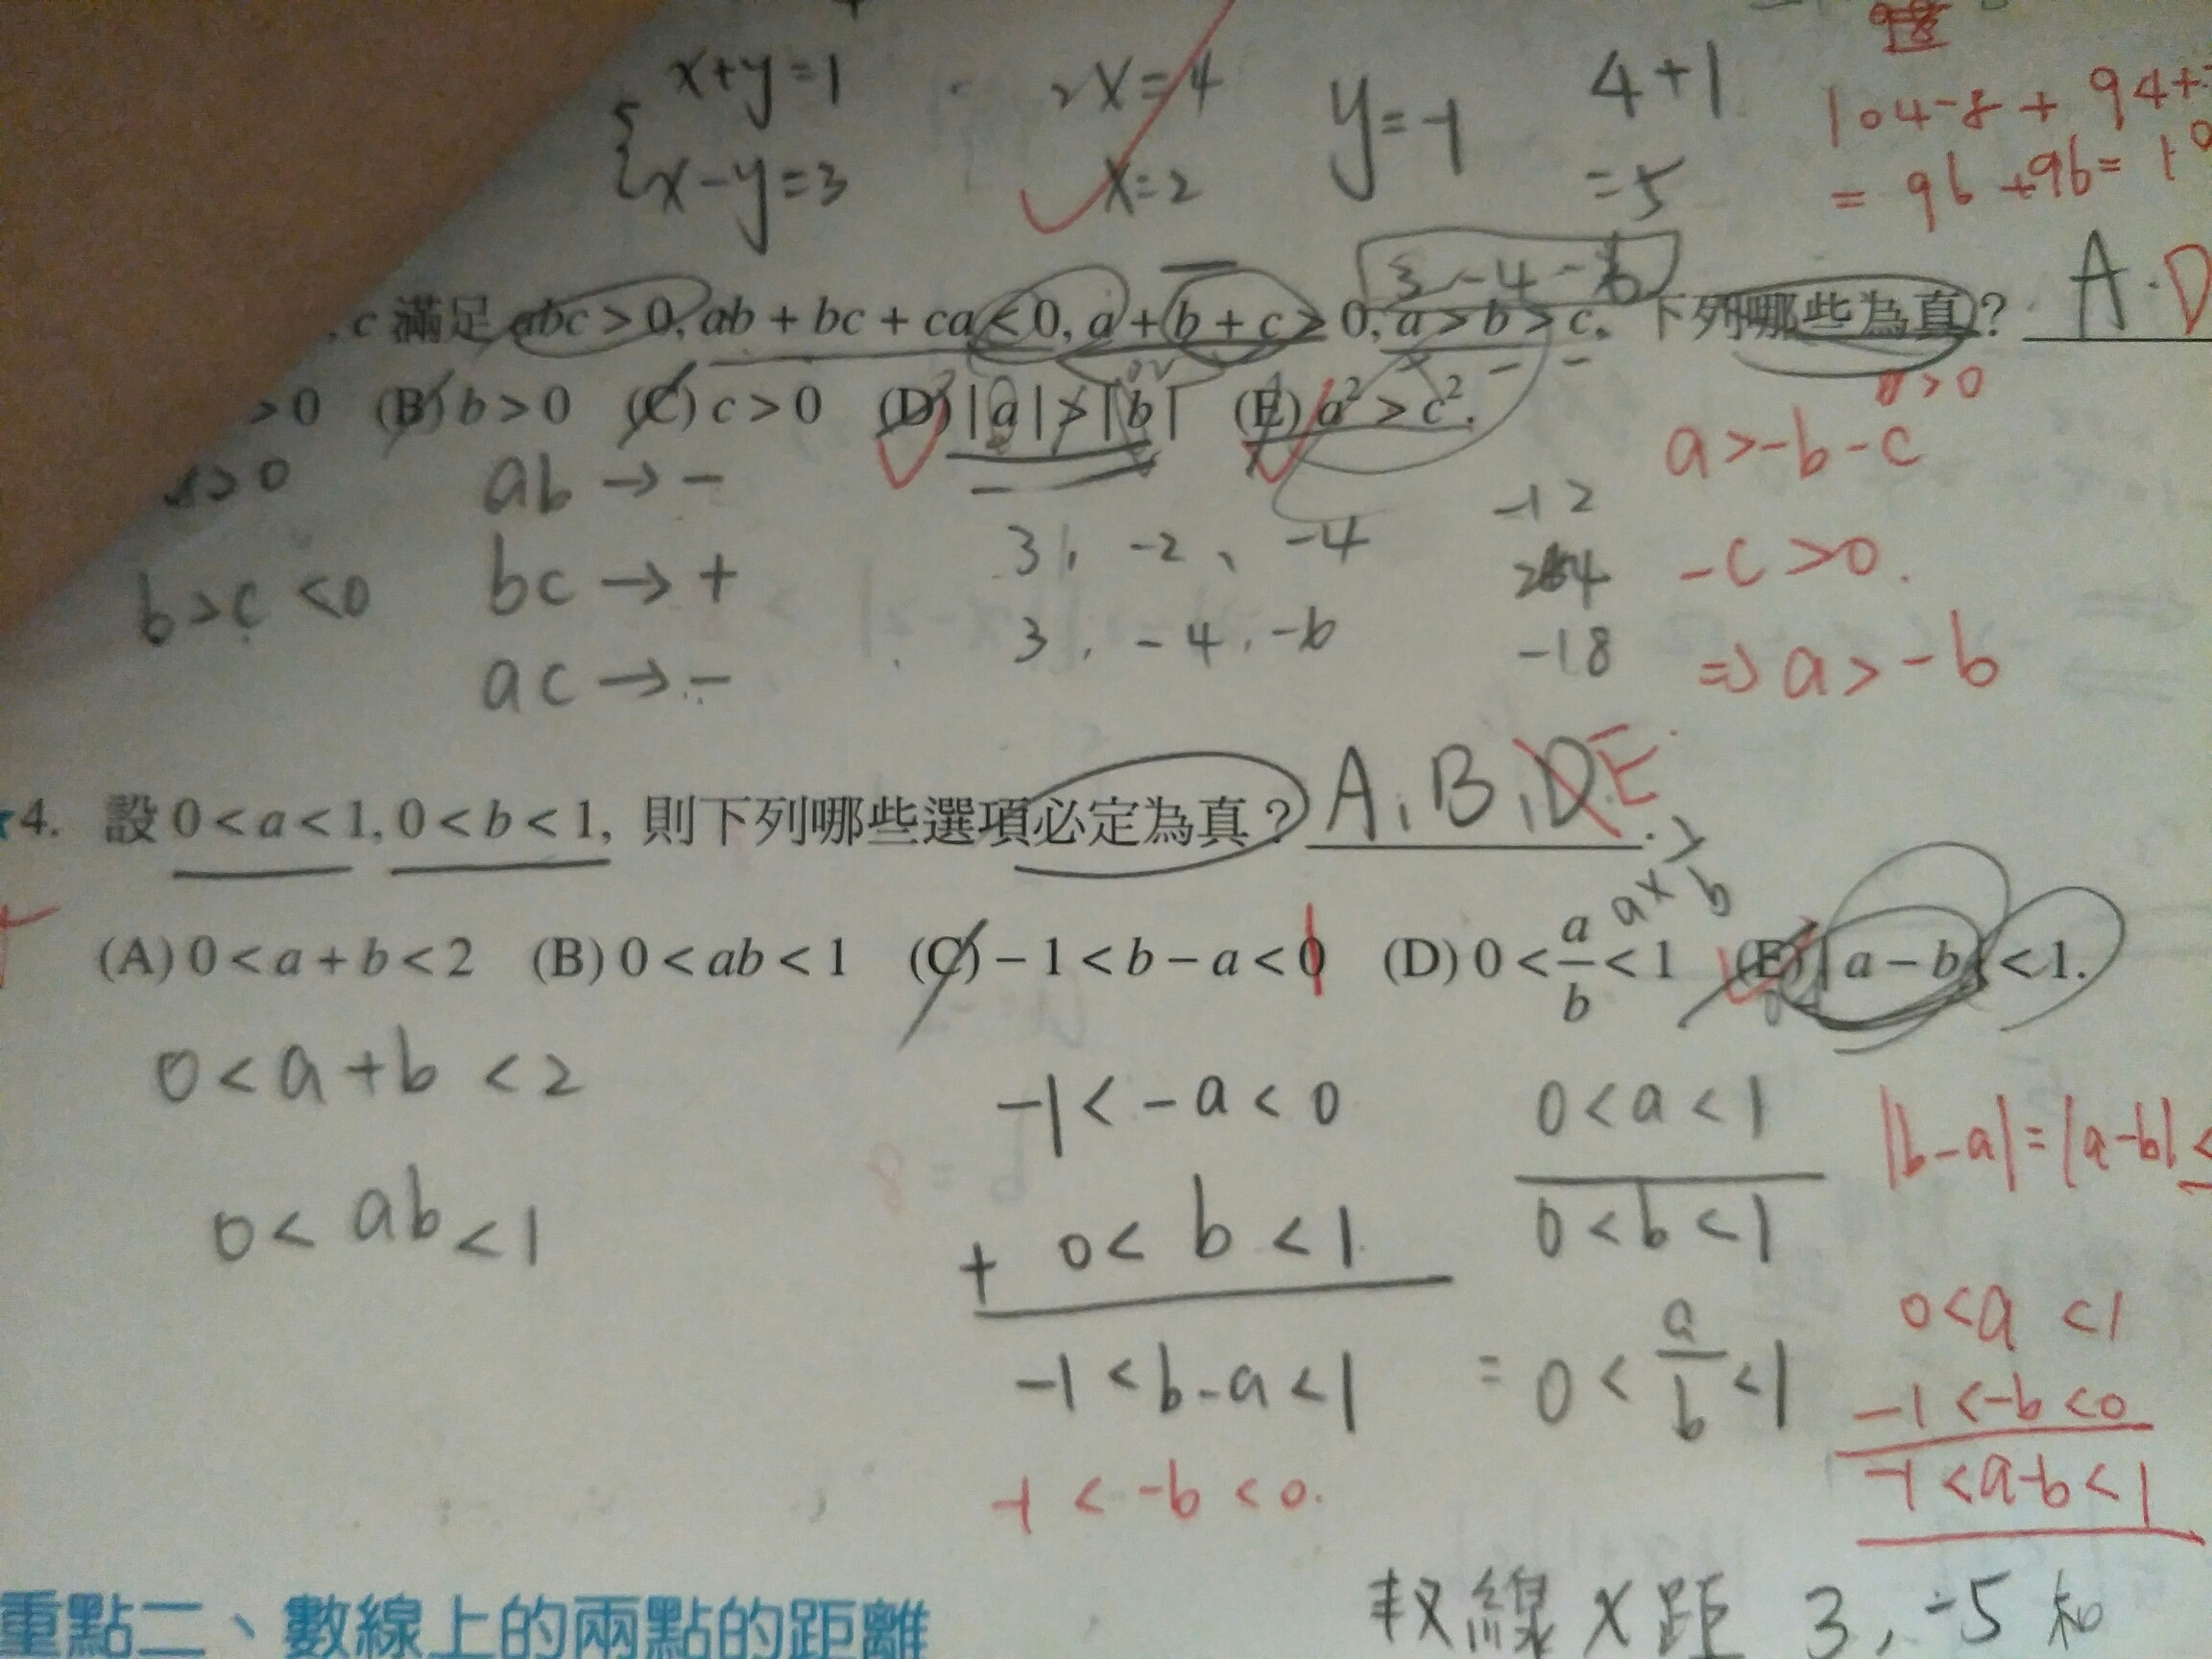 x+y=1 2x=4 y=-1 4+1
x-y=3 x=2 =5
104-8+94+
=96+96=
3 -4 -6
, c 滿足 abc > 0, ab + bc + ca < 0, a + b + c > 0, a > b > c. 下列哪些為真? A.D
> 0 (B) b > 0 (C) c > 0 (D) |a| > |b| (E) a² > c².
a>0
>0 ab → - a>-b-c
3, -2、-4 -12
b>c<0 bc → + -c>0.
3, -4, -6 -18
ac → - ⇒ a>-b
4. 設 0 < a < 1, 0 < b < 1, 則下列哪些選項必定為真? A,B,D E
(A) 0 < a + b < 2 (B) 0 < ab < 1 (C) -1 < b - a < 0 (D) 0 < a/b < 1 (E) |a - b| < 1.
0<a+b<2 -1<-a<0 0<a<1 |b-a|=|a-b|<
0<ab<1 + 0<b<1 0<b<1
0<a<1
-1<b-a<1 =0<a/b<1 -1<-b<0
-1<-b<0. -1<a-b<1
重點二、數線上的兩點的距離 線 距 3, -5 和